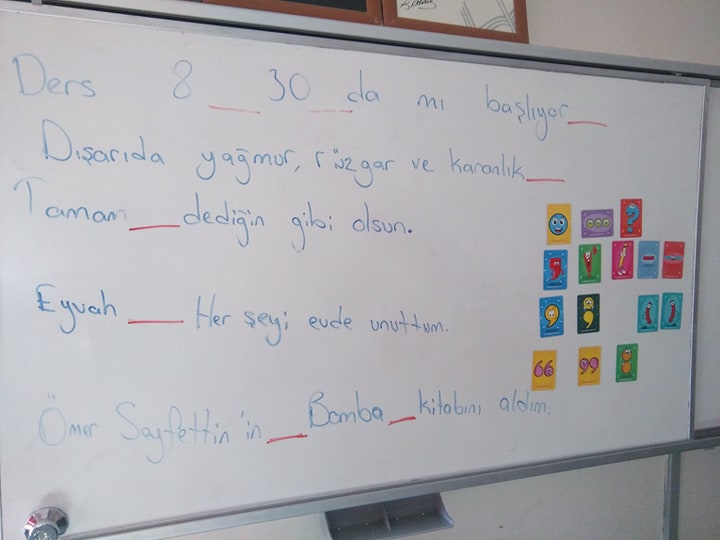 Ders 8 __ 30 __ da mı başlıyor __
Dışarıda yağmur, rüzgar ve karanlık __
Tamam __ dediğin gibi olsun.
Eyvah __ Her şeyi evde unuttum.
Ömer Seyfettin'in __ Bomba __ kitabını aldım.